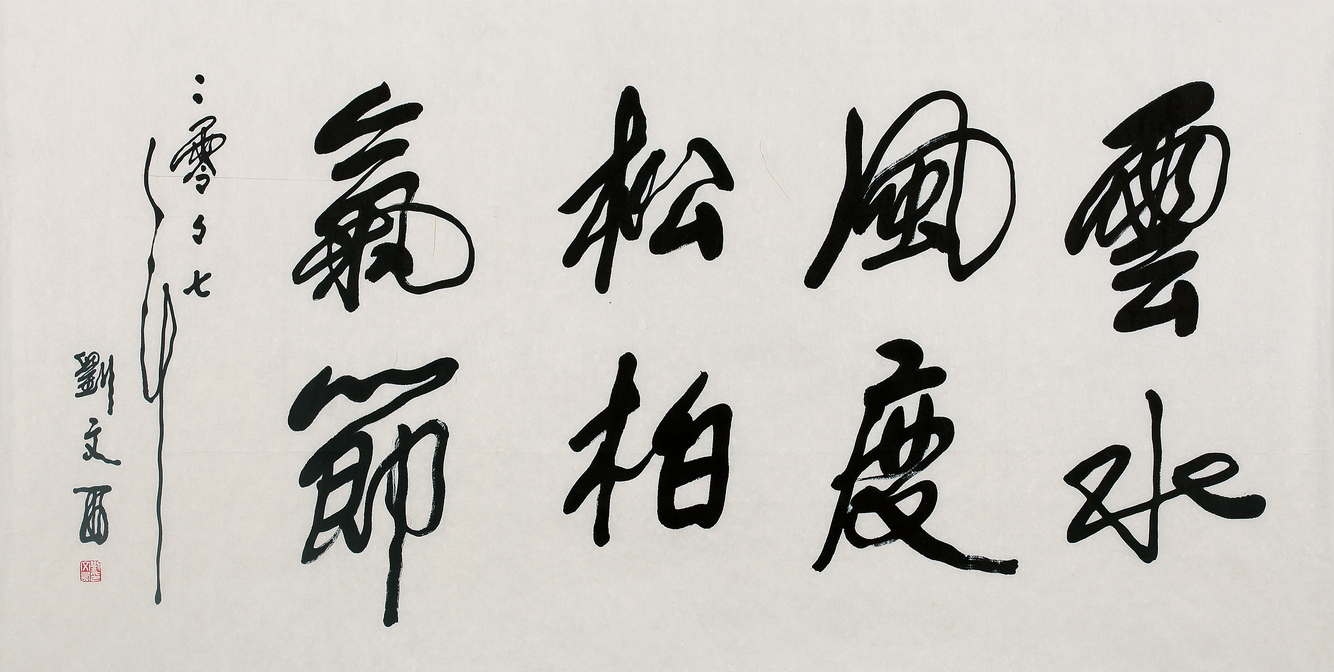 雲水
風度
松柏
氣節
二零零七
年
劉文西